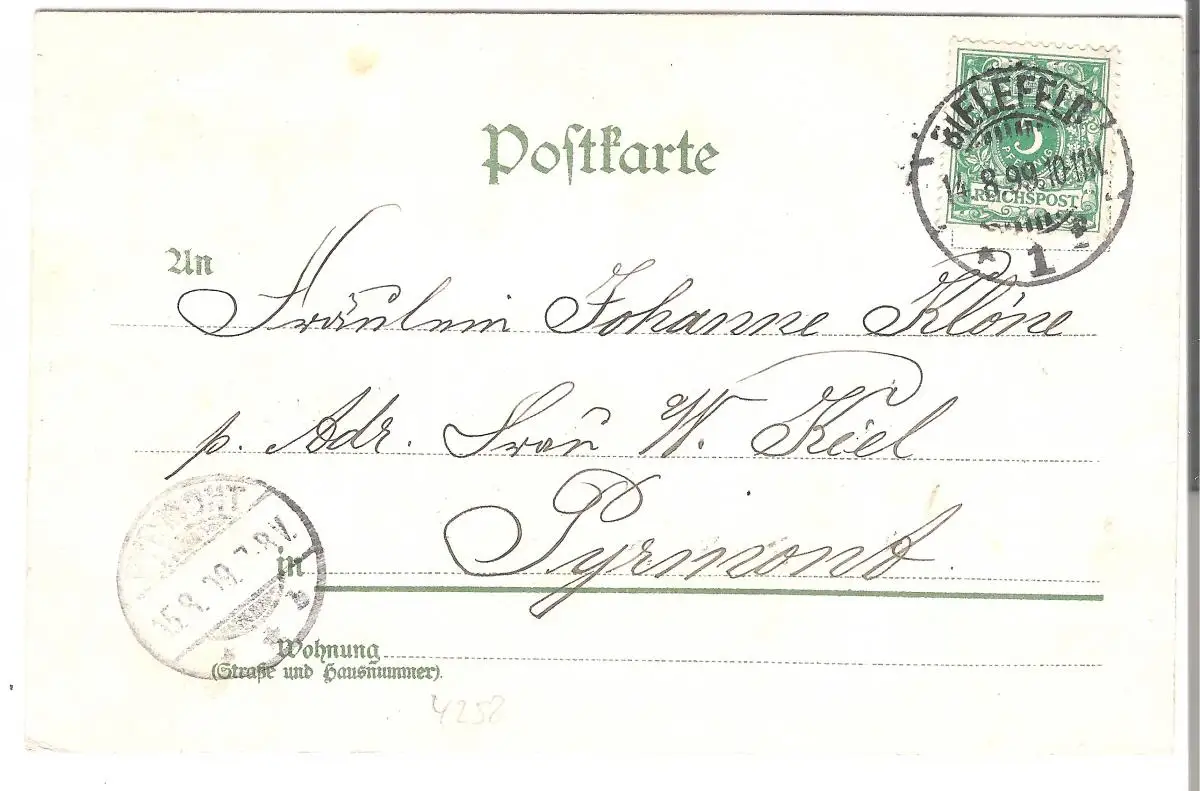 Postkarte
BIELEFELD
14. 8. 99. 10-11 N.
* 1 *
5
PFENNIG
REICHSPOST
An
Fräulein Johanne Klöne
p. Adr. Frau W. Kiel
in Pyrmont.
15.8.
7-8 V.
Wohnung
(Straße und Hausnummer).
4258